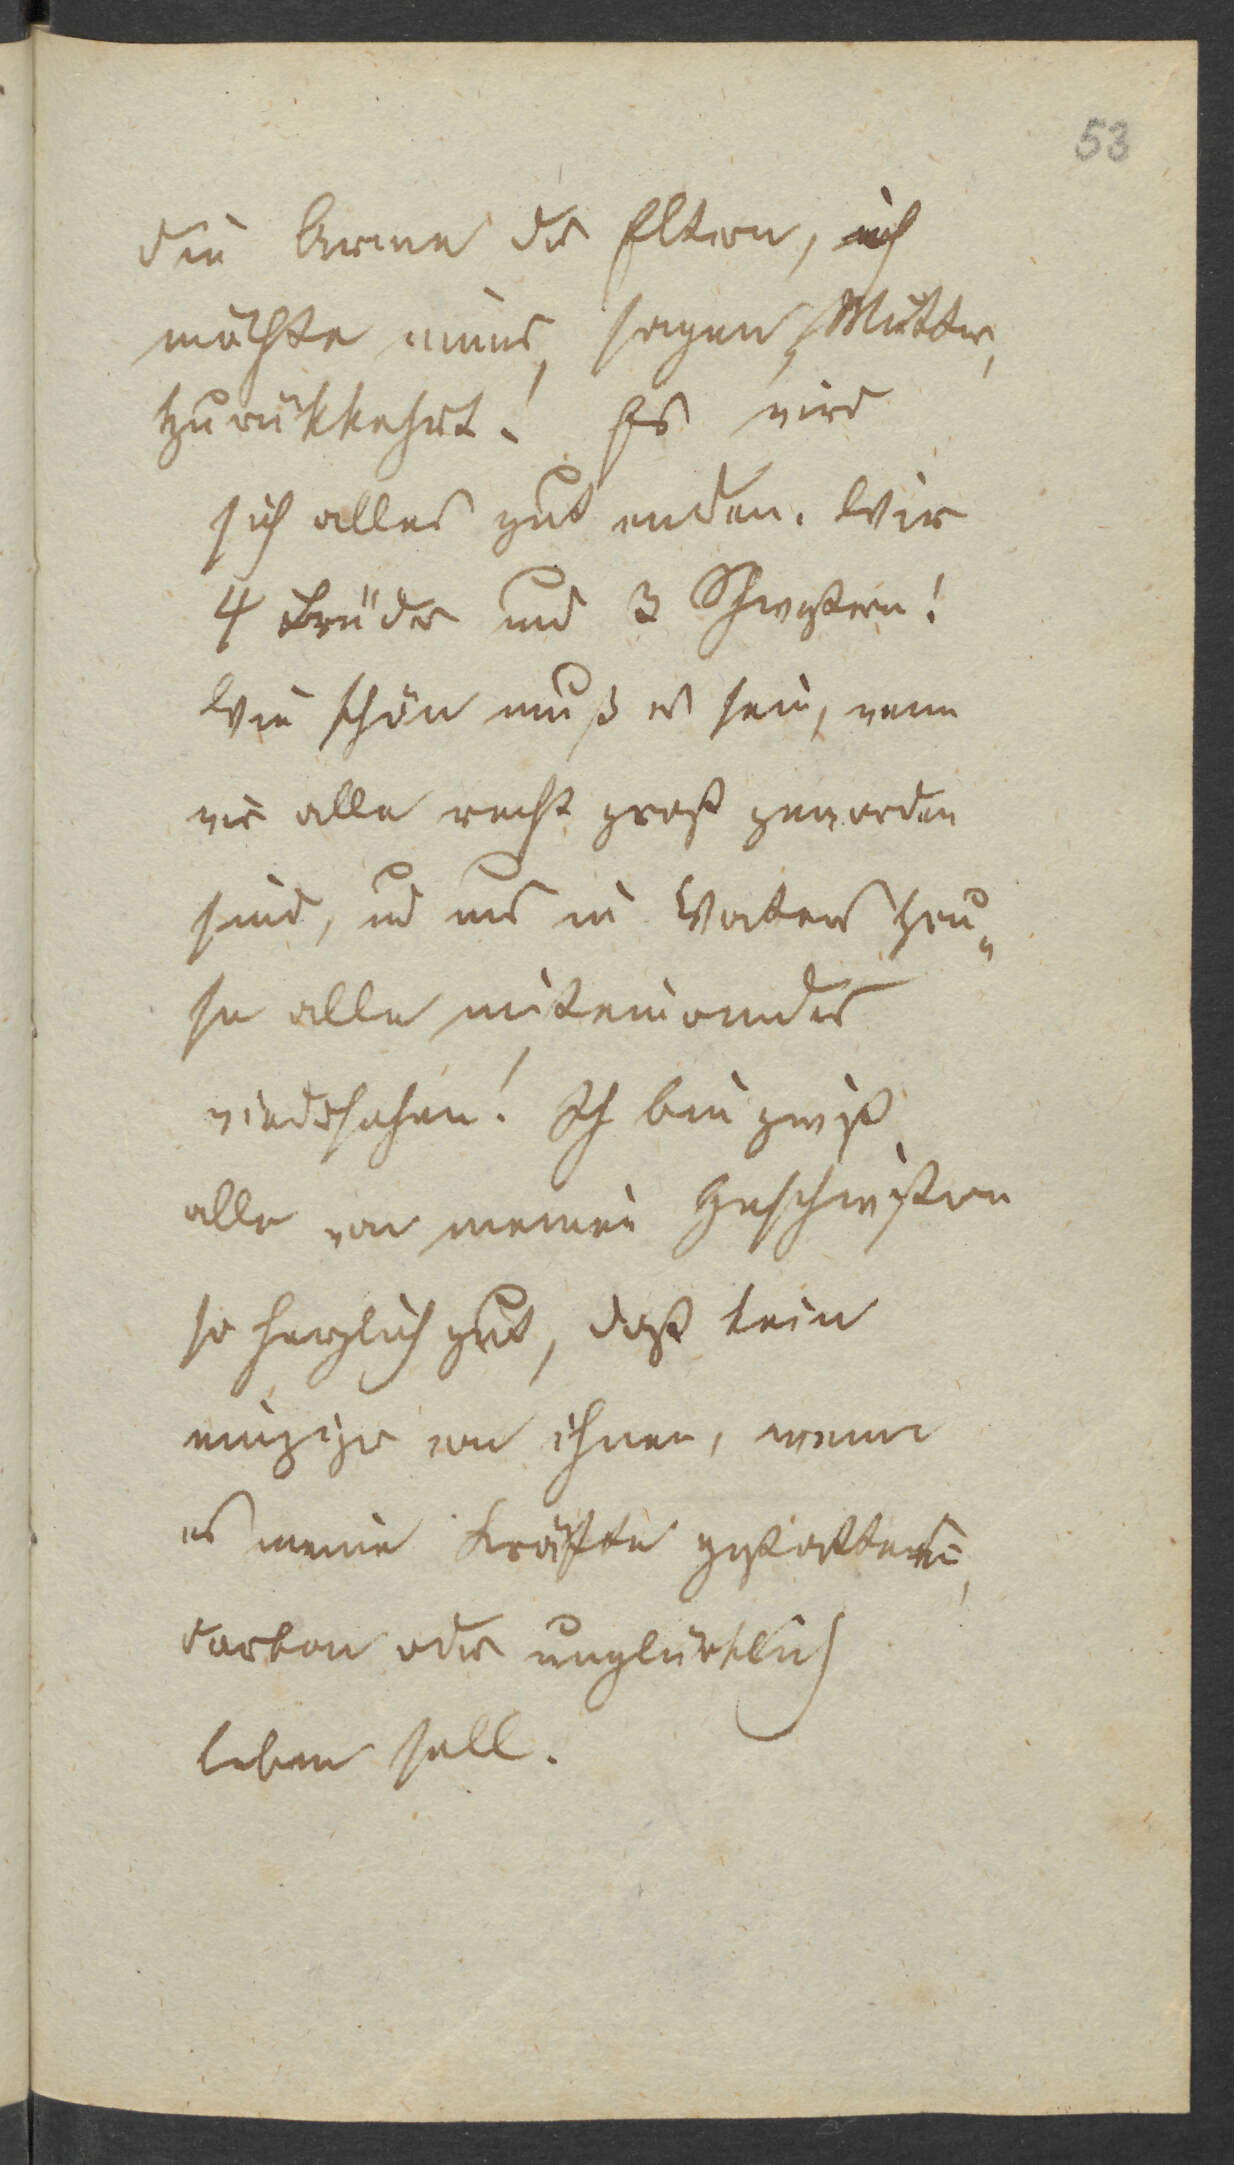 53
die Arme der Eltern, ich
möchte sagen, Mutter,
zurükkehrt! Es wird
sich alles gut enden. Wir
4 Brüder und 3 Schwestern!
Wie schön muß es sein, wenn
wir alle recht groß geworden
sind, und uns in Vaters Hau„
se alle miteinander
wiedersehen! Ich bin gewiß
alle von meinen Geschwistern
so herzlich gut, daß kein
einziger von ihnen, wenn
es meine Kräfte gestatten,
darben oder unglücklich
leben soll.